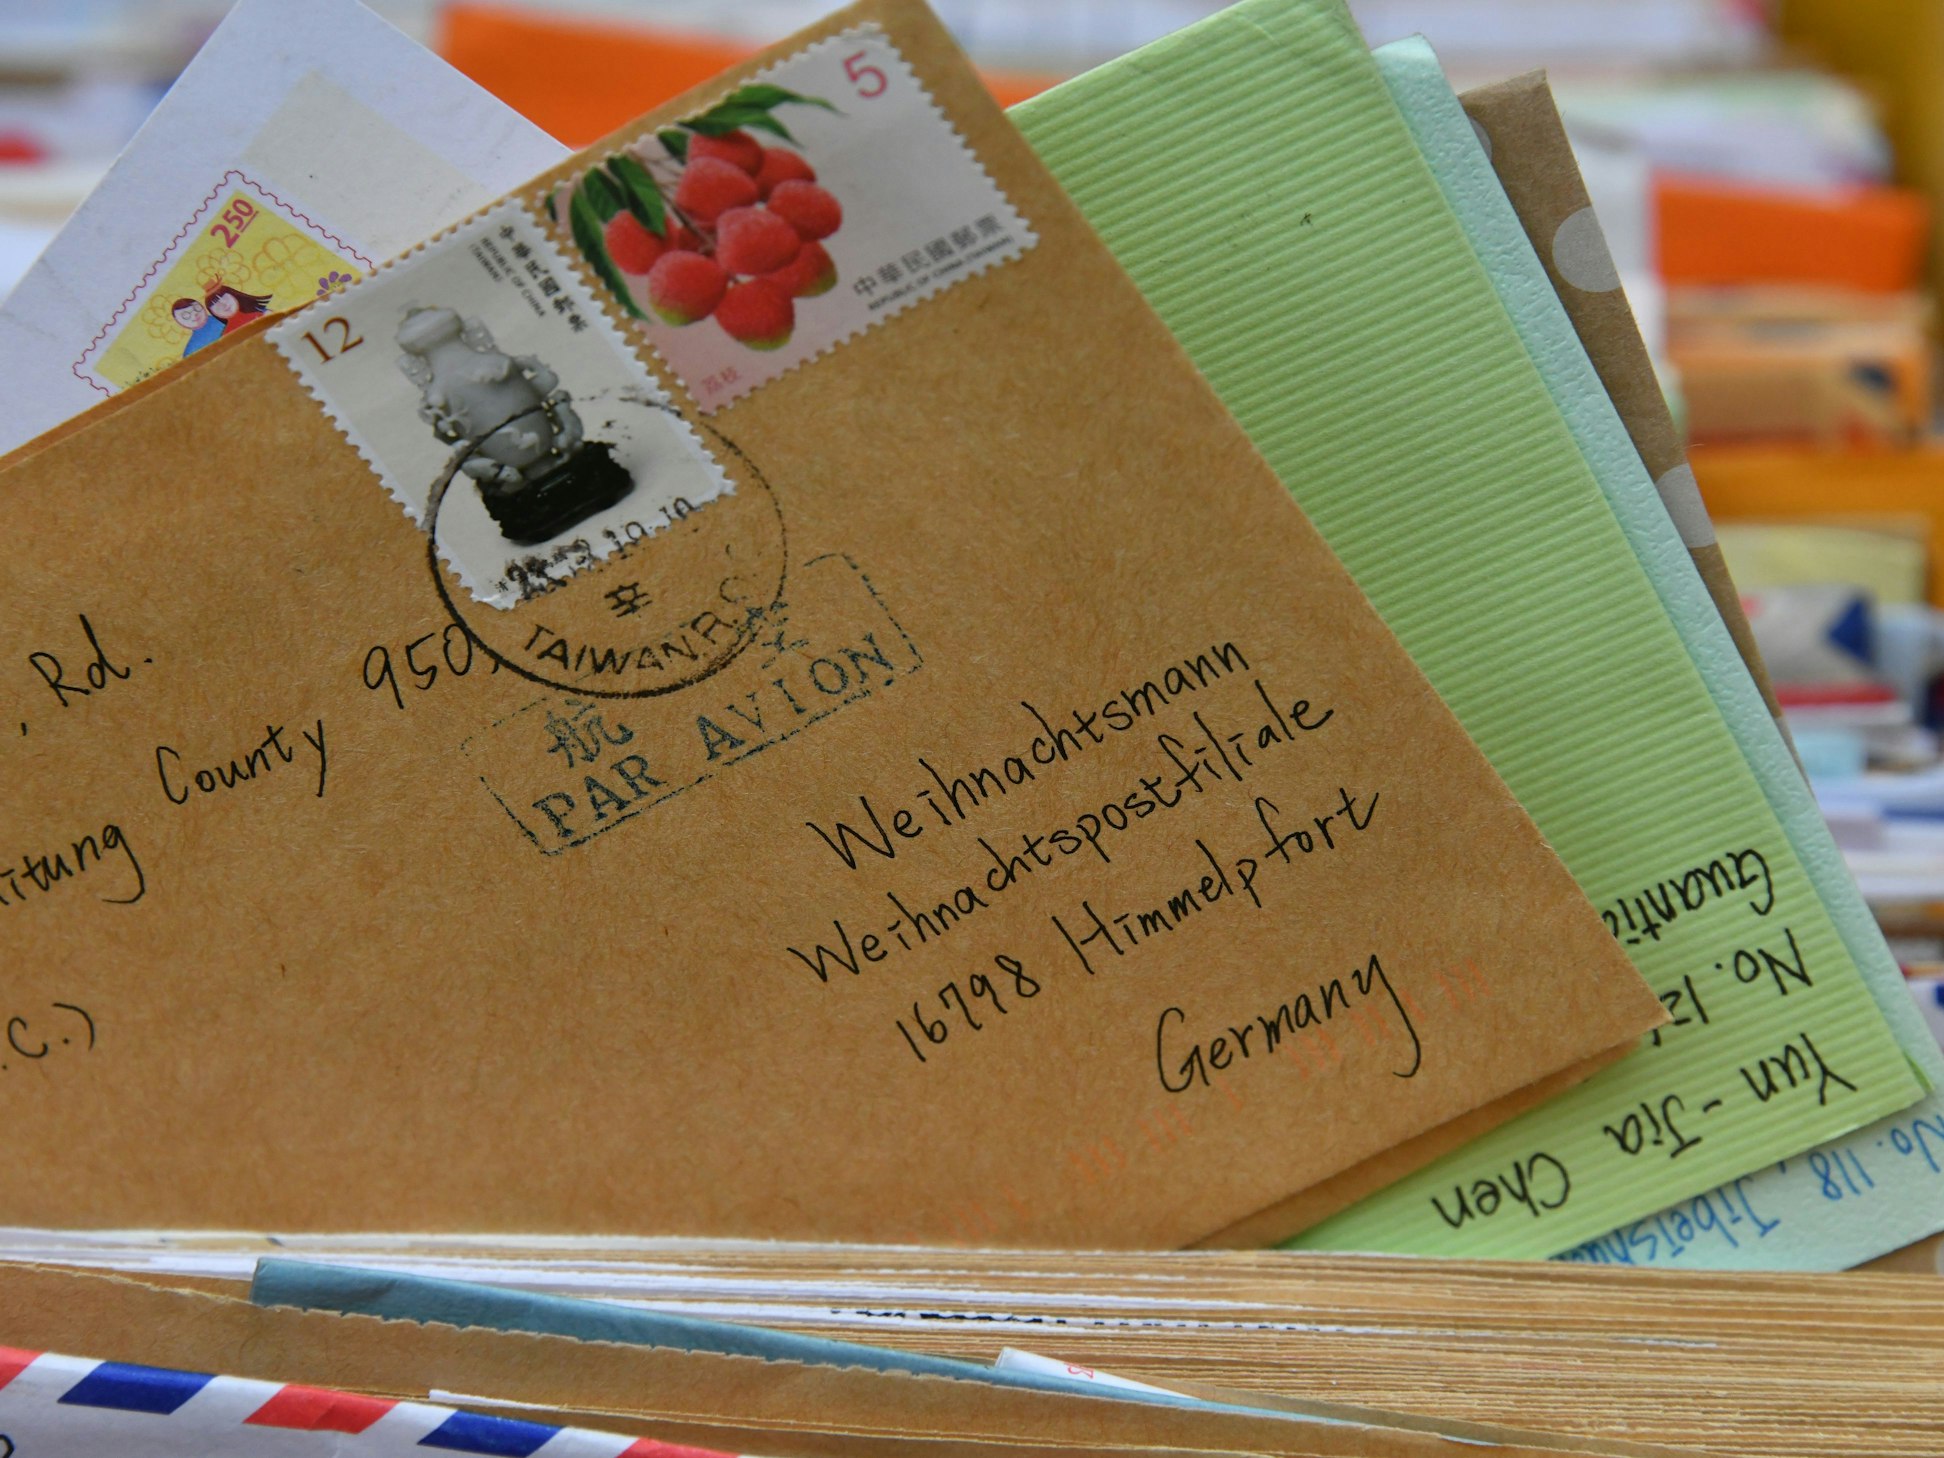 2.50
5
中華民國郵票
REPUBLIC OF CHINA (TAIWAN)
荔枝
12
中華民國郵票
REPUBLIC OF CHINA
(TAIWAN)
19.10
TAIWAN R.
航空
PAR AVION
, Rd.
County 950,
itung
.C.)
Weihnachtsmann
Weihnachtspostfiliale
16798 Himmelpfort
Germany
Yun-Jia Chen
No. 12
Guanti
No. 118,